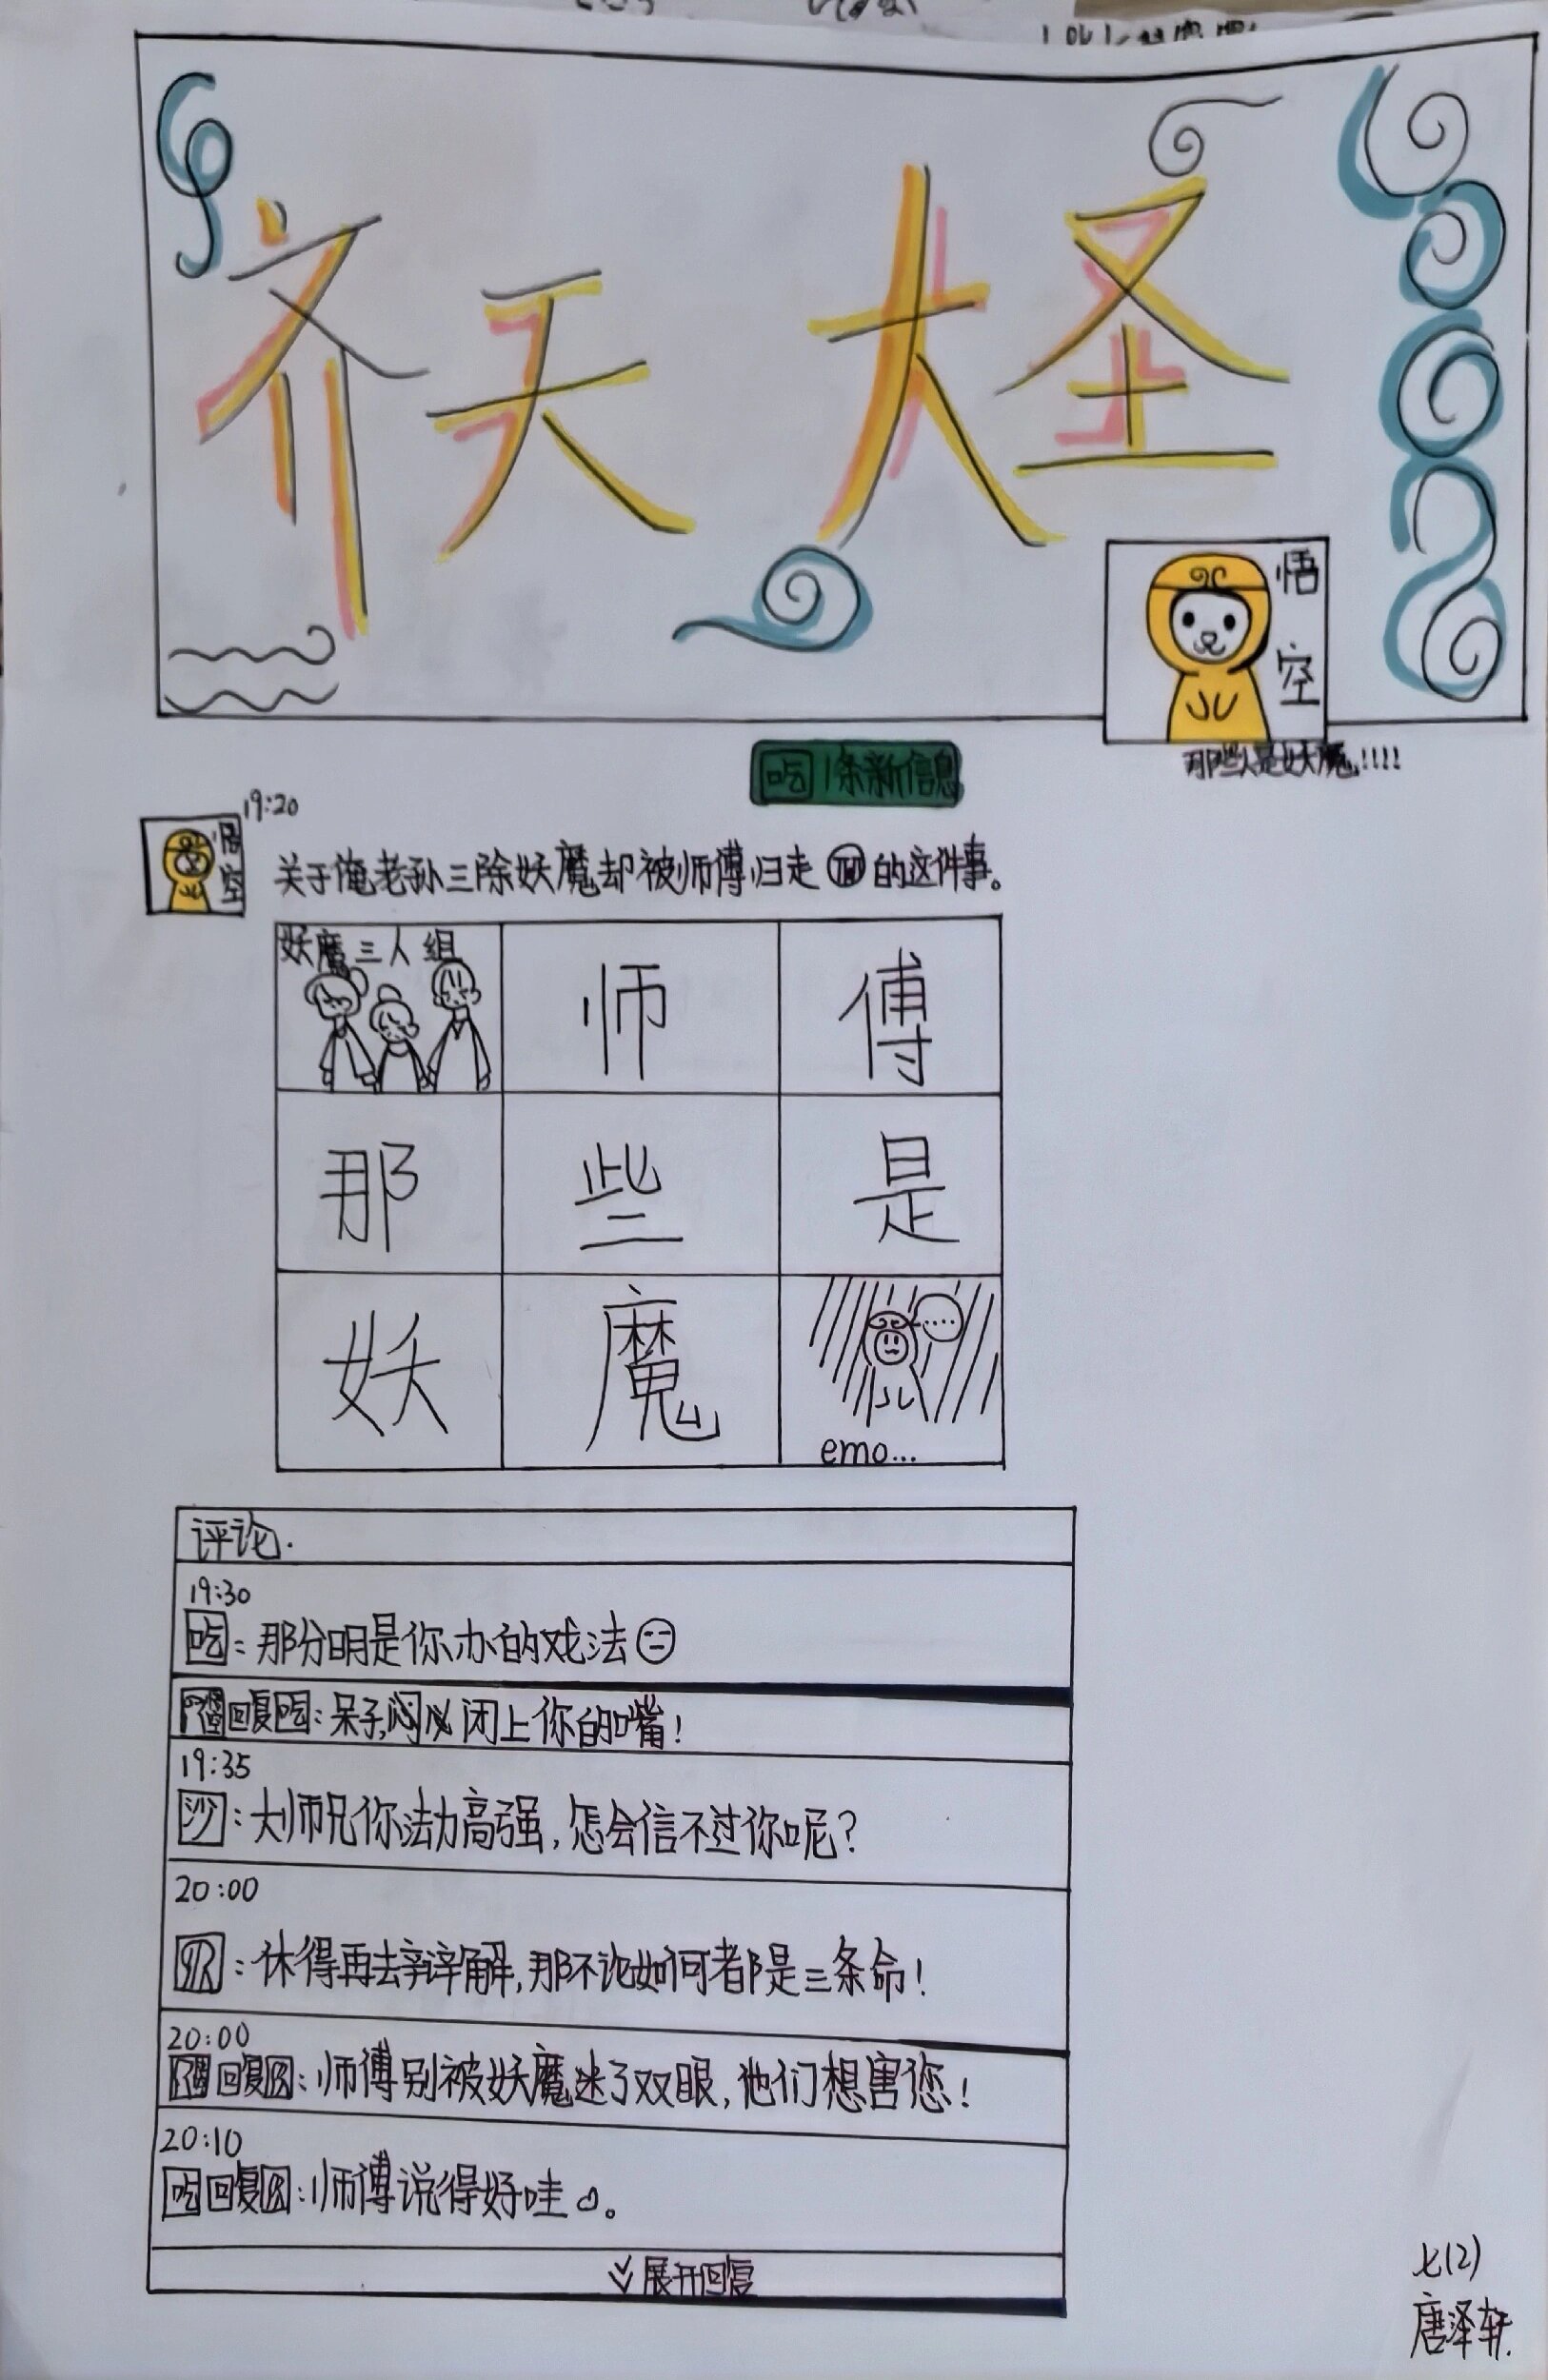 齐天大圣
悟空
那些人是妖魔!!!!
吃 1条新信息
19:20
悟空
关于俺老孙三除妖魔却被师傅归走的这件事。
妖魔三人组
师
傅
那
些
是
妖
魔
emo...
评论.
19:30
吃:那分明是你办的戏法
回复吃:呆子,闭上你的嘴!
19:35
沙:大师兄你法力高强,怎会信不过你呢?
20:00
:休得再去辩解,那不论如何都是三条命!
20:00
回复:师傅别被妖魔迷了双眼,他们想害您!
20:10
吃回复:师傅说得好哇。
展开回复
七(2)
唐泽轩.